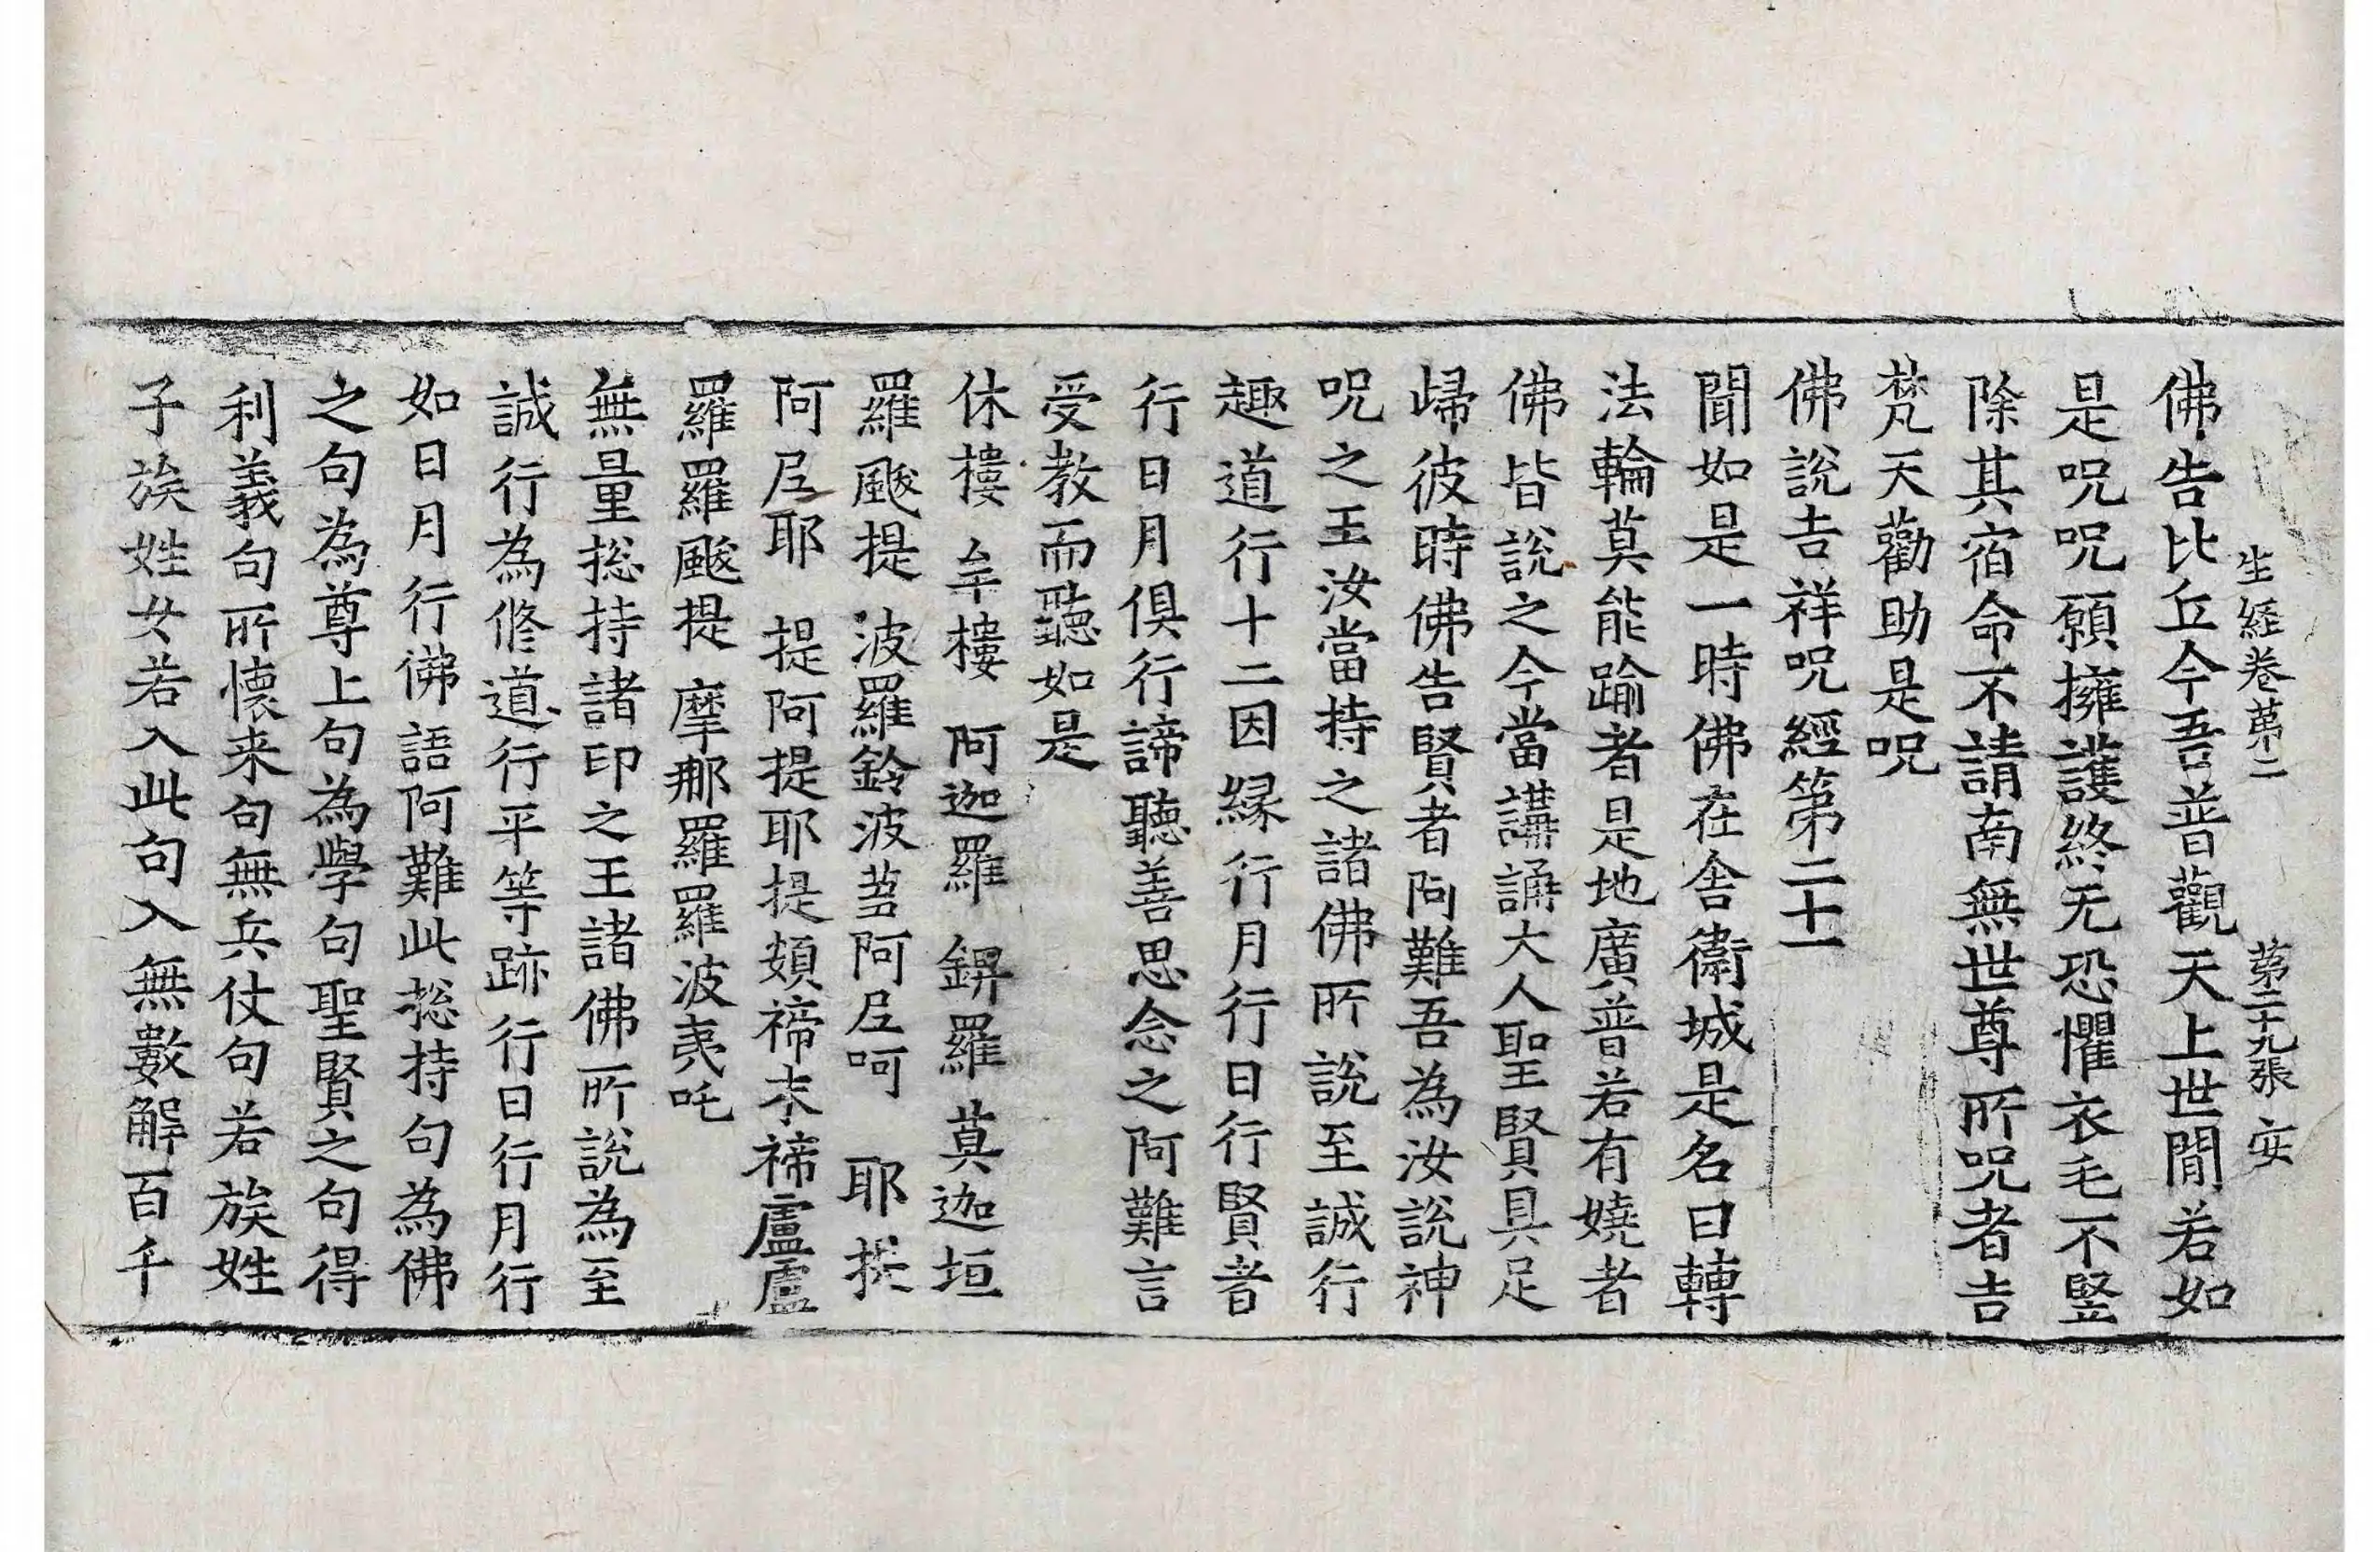 生經卷苐二 苐二十九張 安
佛告比丘今吾普觀天上世閒若如
是呪呪願擁護終无恐懼衣毛不竪
除其宿命不請南無世尊所呪者吉
梵天勸助是呪
佛說吉祥呪經第二十一
聞如是一時佛在舍衛城是名曰轉
法輪莫能踰者是地廣普若有嬈者
佛皆說之今當講誦大人聖賢具足
歸彼時佛告賢者阿難吾為汝說神
呪之王汝當持之諸佛所說至誠行
趣道行十二因縁行月行日行賢者
行日月俱行諦聽善思念之阿難言
受教而聽如是
休樓 牟樓 阿迦羅 鉼羅 莫迦垣
羅颰提 波羅鈴波 阿𡰱呵 耶提
阿𡰱耶 提阿提耶提頞褅末褅盧盧
羅羅颰提 摩那羅羅波夷吒
無量捴持諸印之王諸佛所說為至
誠行為修道行平等跡行日行月行
如日月行佛語阿難此捴持句為佛
之句為尊上句為學句聖賢之句得
利義句所懷来句無兵仗句若族姓
子族姓女若入此句入無數解百千